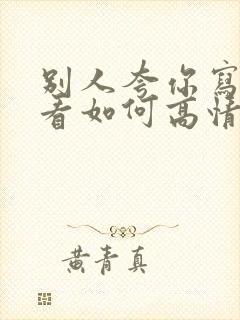 別人夸你寫
看如何高情
黄青真